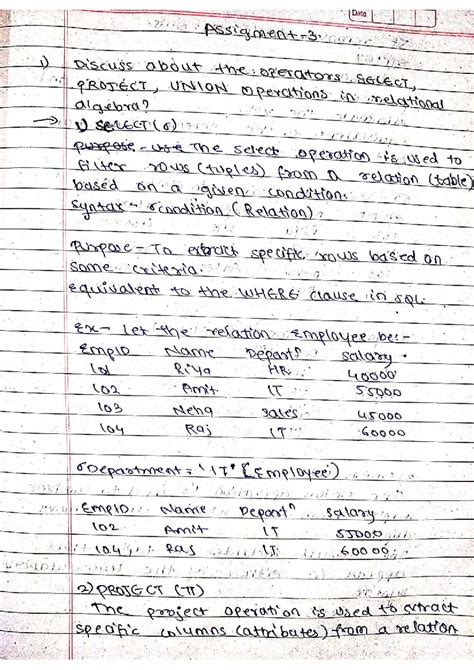 Date
Assigment-3.
1) Discuss about the operators SELECT,
PROJECT, UNION operations in relational
algebra?
→ 1) SELECT (σ)
purpose - The select operation is used to
filter rows (tuples) from a relation (table)
based on a given condition.
Syntax - σcondition (Relation)
Purpose - To extract specific rows based on
some criteria.
Equivalent to the WHERE clause in SQL.
Ex - Let the relation Employee be:-
EmpID Name Departⁿ Salary
101 Riya HR 40000
102 Amit IT 55000
103 Neha Sales 45000
104 Raj IT 60000
σDepartment = 'IT' (Employee)
EmpID Name Departⁿ Salary
102 Amit IT 55000
104 Ras IT 60000
2) PROJECT (π)
The project operation is used to extract
specific columns (attributes) from a relation